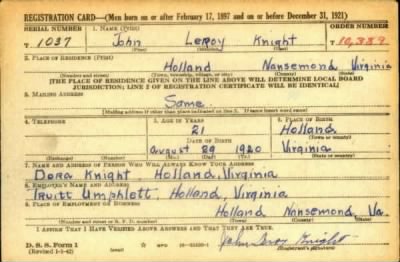 REGISTRATION CARD—(Men born on or after February 17, 1897 and on or before December 31, 1921)
SERIAL NUMBER 1. NAME (Print) ORDER NUMBER
T 1037 John LeRoy Knight T 10,389
(First) (Middle) (Last)
2. PLACE OF RESIDENCE (Print)
Holland Nansemond Virginia
(Number and street) (Town, township, village, or city) (County) (State)
[THE PLACE OF RESIDENCE GIVEN ON THE LINE ABOVE WILL DETERMINE LOCAL BOARD
JURISDICTION; LINE 2 OF REGISTRATION CERTIFICATE WILL BE IDENTICAL]
3. MAILING ADDRESS
Same.
[Mailing address if other than place indicated on line 2. If same insert word same]
4. TELEPHONE 5. AGE IN YEARS 6. PLACE OF BIRTH
21 Holland
DATE OF BIRTH (Town or county)
August 29 1920 Virginia
(Exchange) (Number) (Mo.) (Day) (Yr.) (State or country)
7. NAME AND ADDRESS OF PERSON WHO WILL ALWAYS KNOW YOUR ADDRESS
Dora Knight Holland, Virginia
8. EMPLOYER'S NAME AND ADDRESS
Truitt Umphlett, Holland, Virginia
9. PLACE OF EMPLOYMENT OR BUSINESS
Holland Nansemond Va.
(Number and street or R. F. D. number) (Town) (County) (State)
I AFFIRM THAT I HAVE VERIFIED ABOVE ANSWERS AND THAT THEY ARE TRUE.
D. S. S. Form 1
(Revised 1-1-42) GPO John Leroy Knight
(Registrant's signature)